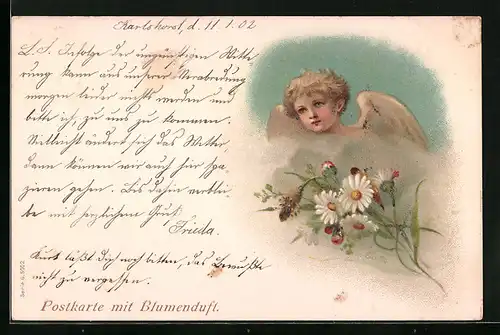 Karlshorst, d. 11.1.02
L. S. Infolge der ungünstigen Witte-
rung kann aus unserer Verabredung
morgen leider nichts werden und
bitte ich, zu uns zu kommen.
Vielleicht ändert sich das Wetter,
dann können wir auch hier spa-
zieren gehen. Bis dahin verblei-
be mit herzlichem Gruß,
Frieda.
Kurt läßt Dich noch bitten, das Bewußte
nicht zu vergessen.
Postkarte mit Blumenduft.